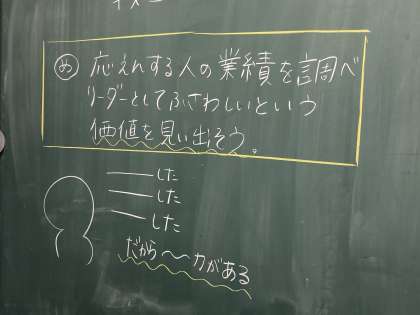 め 応えんする人の業績を調べ
リーダーとしてふさわしいという
価値を見い出そう。
した
した
した
だから〜力がある